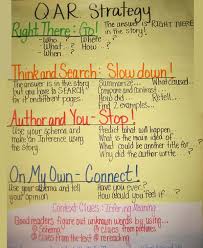 QAR Strategy
Right There: Go!
The answer is RIGHT THERE
in the story!
- Who..? Where ..?
- What ..? When ..?
- When ..? How ..?
Think and Search: Slow down!
The answer is in the story
but you have to SEARCH
for it on different pages.
Summarize...
What caused...
Compare and Contrast...
How did...
Retell...
Find 2 examples...
Author and You - Stop!
Use your schema and
make an Inference using
the story.
Predict what will happen
What is the main idea of
What could be another title for
Why did the author write
On My Own - Connect!
Use your schema and tell
your opinion
Have you ever ?
How would you feel if ?
Context Clues:
Good readers figure out unknown words by using...
clues from pictures
clues from the text
rereading